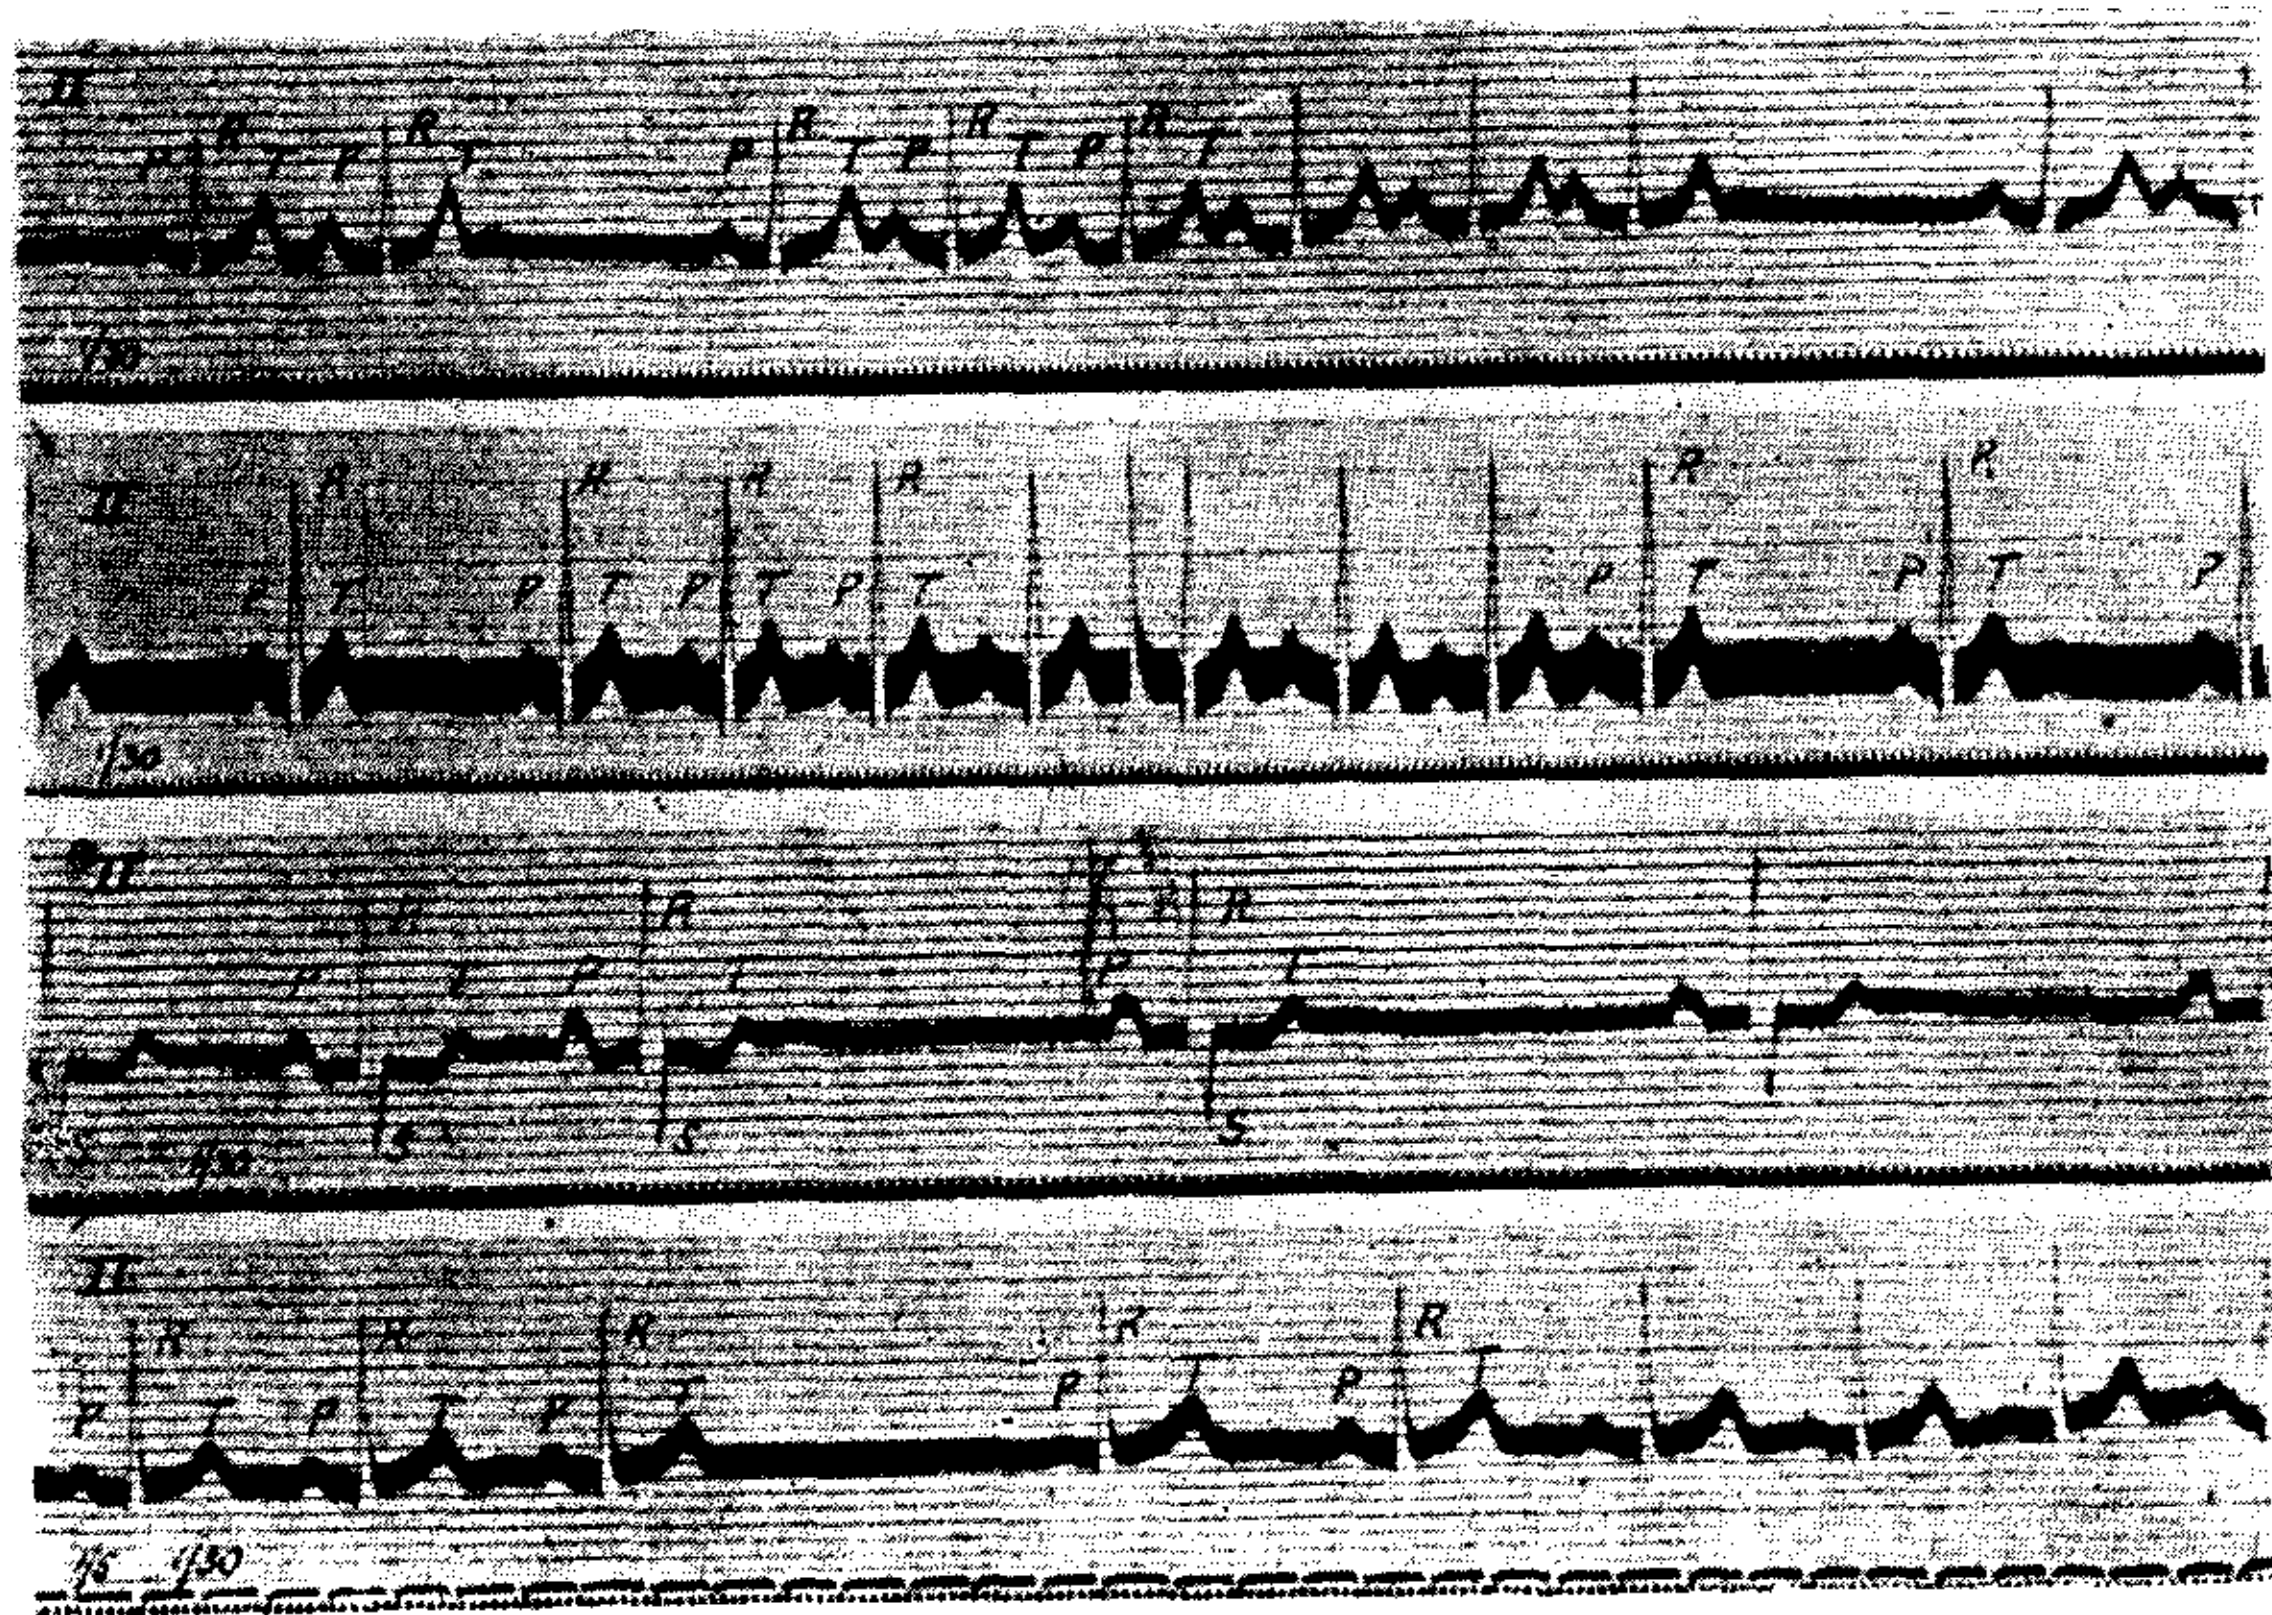 II
R R R R R
P T P T P T P T P T
1/30
II
R R R R R R
P T P T P T P T P T P T P
1/30
II
R R R
P T P T P T
S S S
1/30
II
R R R R R
P T P T P T P T P T
1/5 1/30